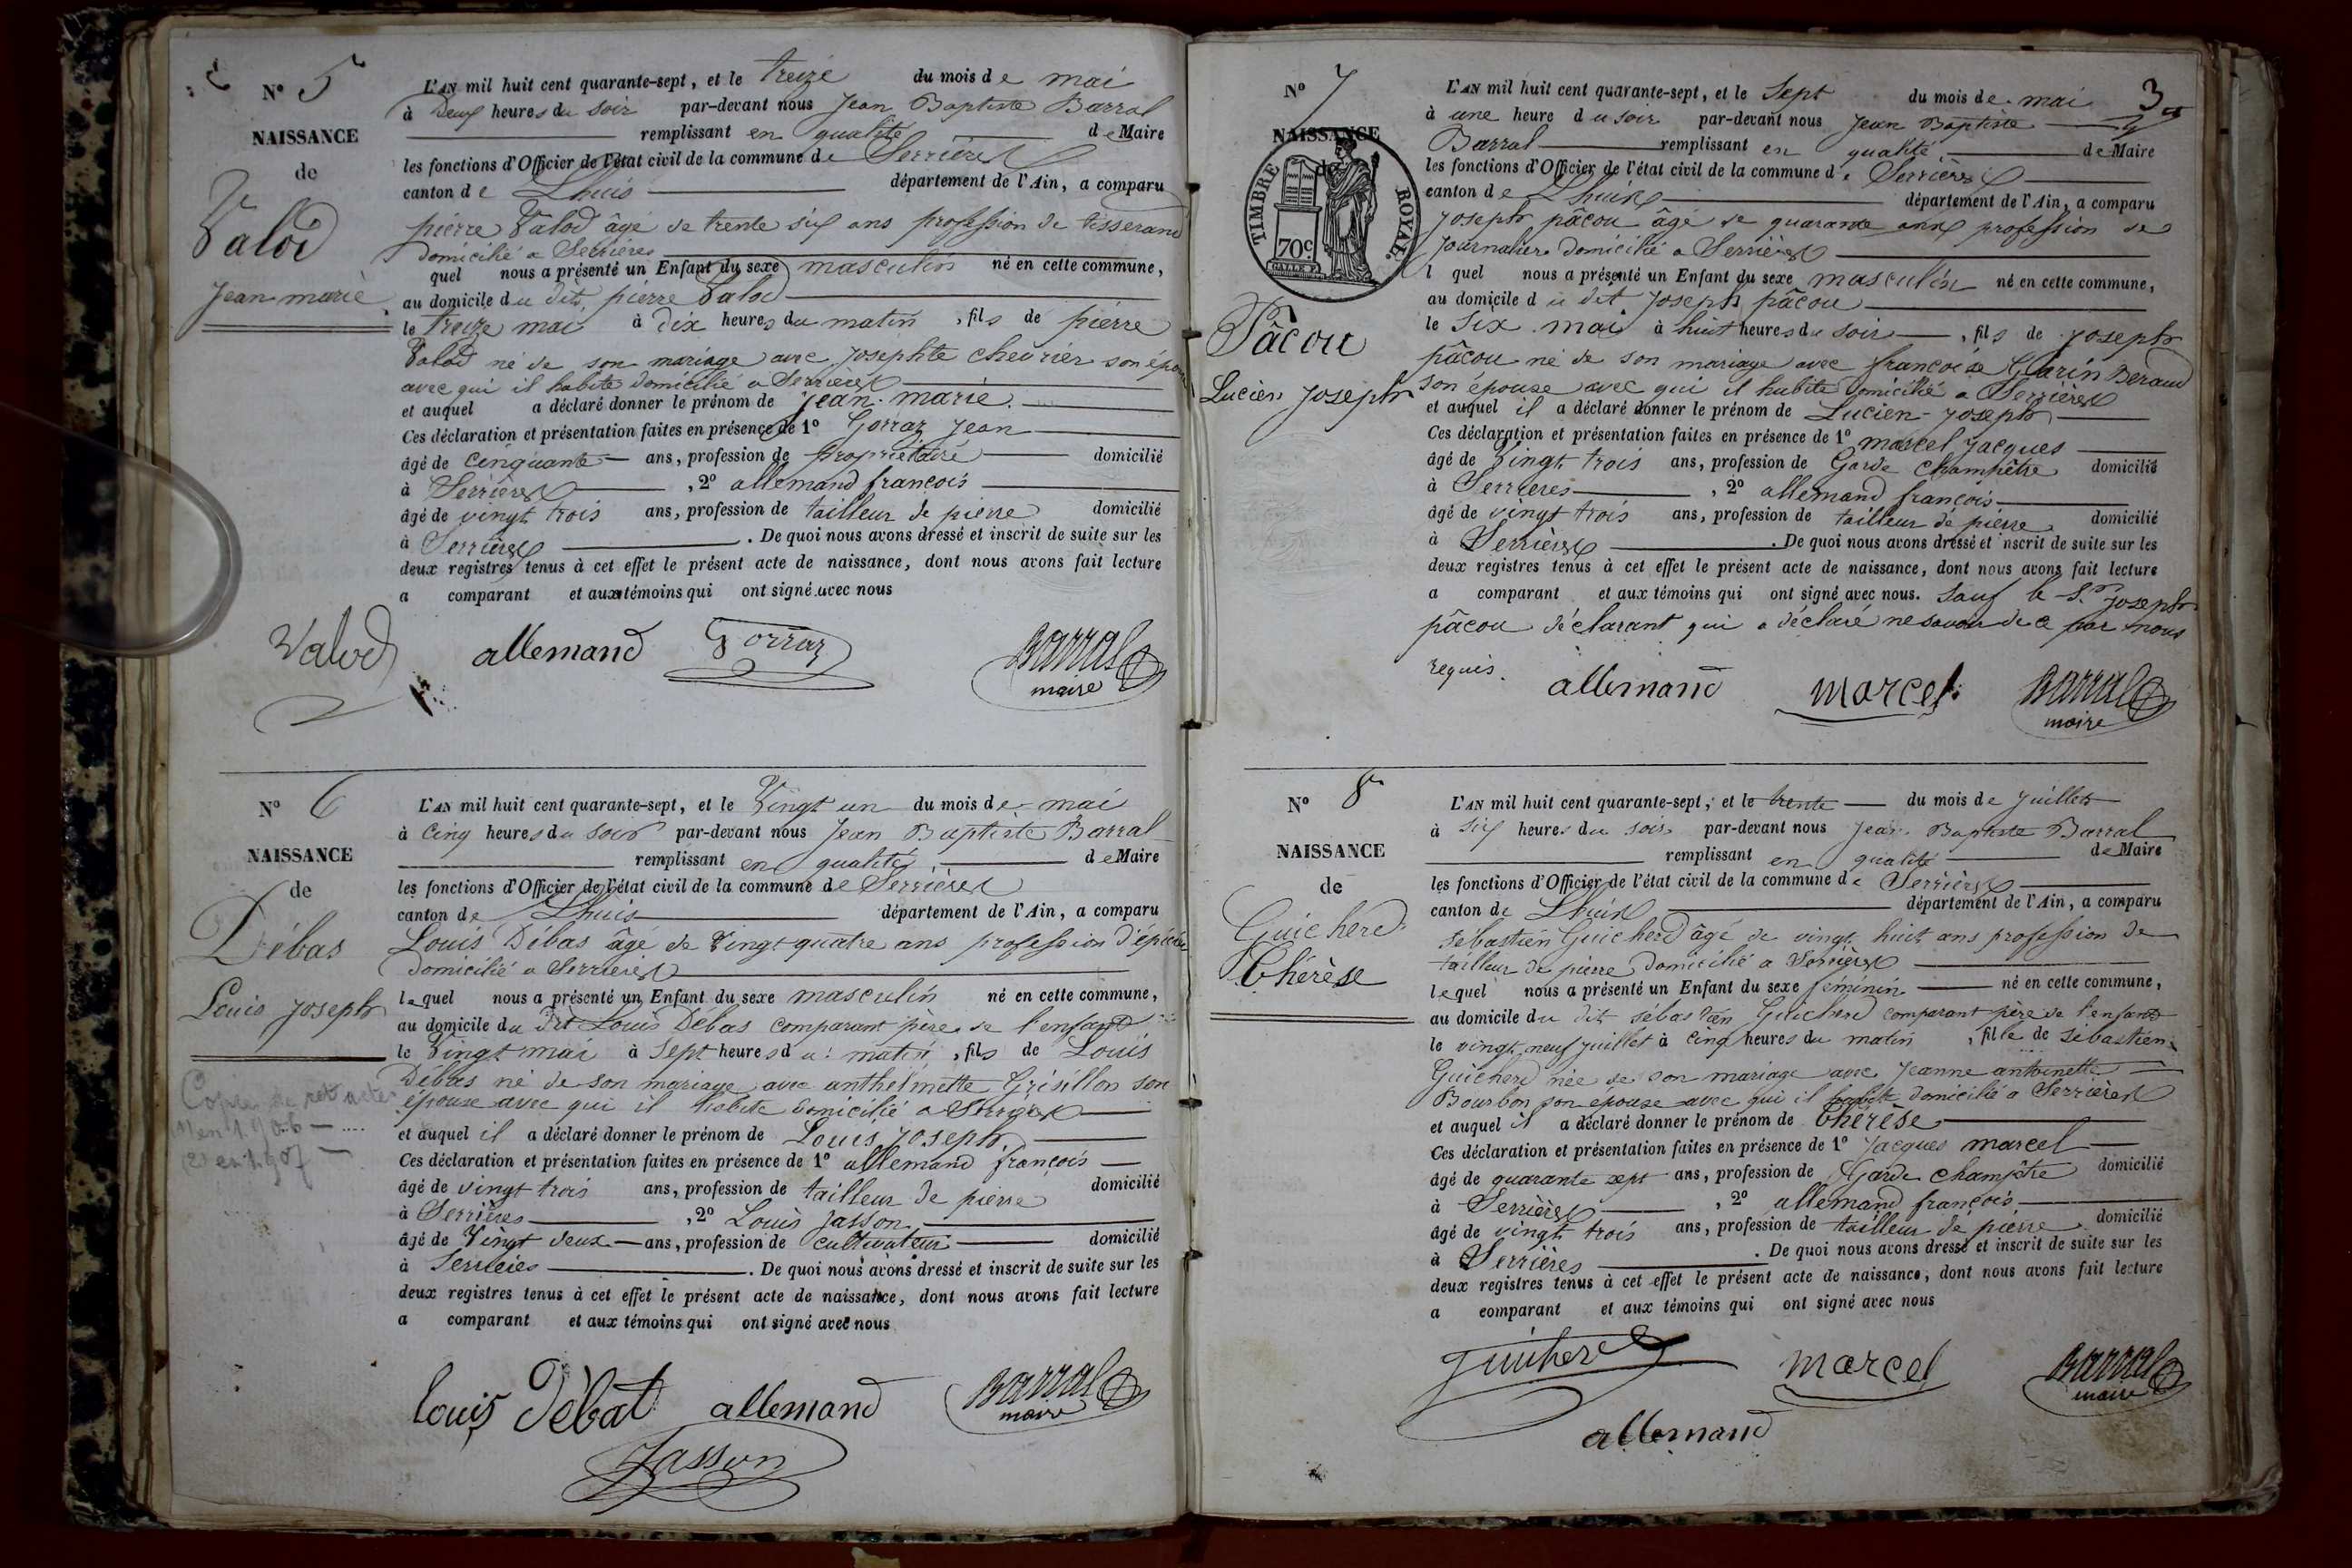 N° 5
NAISSANCE
de
Valod
Jean marie
L'AN mil huit cent quarante-sept, et le treize du mois de mai
à Deux heures du soir par-devant nous Jean Baptiste Barral
remplissant en qualité de Maire
les fonctions d'Officier de l'état civil de la commune de Serrières
canton de Lhuis département de l'Ain, a comparu
pierre Valod âgé de trente six ans profession de tisserand
domicilié a Serrières
quel nous a présenté un Enfant du sexe masculin né en cette commune,
au domicile du dit pierre Valod
le treize mai à dix heures du matin, fils de pierre
Valod né de son mariage avec Josephte chevrier son épouse
avec qui il habite domicilié a Serrières
et auquel a déclaré donner le prénom de Jean-marie
Ces déclaration et présentation faites en présence de 1° Gorraz Jean
âgé de cinquante ans, profession de propriétaire domicilié
à Serrières, 2° allemand françois
âgé de vingt trois ans, profession de tailleur de pierre domicilié
à Serrières. De quoi nous avons dressé et inscrit de suite sur les
deux registres tenus à cet effet le présent acte de naissance, dont nous avons fait lecture
a comparant et aux témoins qui ont signé avec nous
Valod allemand Gorraz Barral
maire
N° 6
NAISSANCE
de
Débas
Louis Joseph
Copie de cet acte
1) en 1906
(2) en 1907
L'AN mil huit cent quarante-sept, et le Vingt un du mois de mai
à cinq heures du soir par-devant nous Jean Baptiste Barral
remplissant en qualité de Maire
les fonctions d'Officier de l'état civil de la commune de Serrières
canton de Lhuis département de l'Ain, a comparu
Louis Débas âgé de Vingt quatre ans profession d'épicier
domicilié a Serrières
lequel nous a présenté un Enfant du sexe masculin né en cette commune,
au domicile du dit Louis Débas comparant père de l'enfant
le Vingt mai à Sept heures du matin, fils de Louis
Débas né de son mariage avec anthelmette Grisillon son
épouse avec qui il habite domicilié a Serrières
et auquel il a déclaré donner le prénom de Louis Joseph
Ces déclaration et présentation faites en présence de 1° allemand françois
âgé de vingt trois ans, profession de tailleur de pierre domicilié
à Serrières, 2° Louis Jasson
âgé de Vingt deux ans, profession de cultivateur domicilié
à Serrières. De quoi nous avons dressé et inscrit de suite sur les
deux registres tenus à cet effet le présent acte de naissance, dont nous avons fait lecture
a comparant et aux témoins qui ont signé avec nous
Louis Débat allemand Barral
maire
Jasson
3
N° 7
NAISSANCE
de
TIMBRE ROYAL.
70c
Pâcou
Lucien Joseph
L'AN mil huit cent quarante-sept, et le Sept du mois de mai
à une heure du soir par-devant nous Jean Baptiste
Barral remplissant en qualité de Maire
les fonctions d'Officier de l'état civil de la commune de Serrières
canton de Lhuis département de l'Ain, a comparu
Joseph pâcou âgé de quarante ans profession de
Journalier domicilié a Serrières
l quel nous a présenté un Enfant du sexe masculin né en cette commune,
au domicile du dit Joseph pâcou
le Six mai à huit heures du soir, fils de Joseph
pâcou né de son mariage avec françoise Guarin Beraud
son épouse avec qui il habite domicilié a Serrières
et auquel il a déclaré donner le prénom de Lucien-Joseph
Ces déclaration et présentation faites en présence de 1° marcel Jacques
âgé de Vingt trois ans, profession de Garde Champêtre domicilié
à Serrières, 2° allemand françois
âgé de vingt trois ans, profession de tailleur de pierre domicilié
à Serrières. De quoi nous avons dressé et inscrit de suite sur les
deux registres tenus à cet effet le présent acte de naissance, dont nous avons fait lecture
a comparant et aux témoins qui ont signé avec nous. Sauf le Sr. Joseph
pâcou déclarant qui a déclaré ne savoir de ce par nous
requis.
allemand marcel Barral
maire
N° 8
NAISSANCE
de
Guicherd
Thérèse
L'AN mil huit cent quarante-sept, et le trente du mois de Juillet
à six heures du soir par-devant nous Jean Baptiste Barral
remplissant en qualité de Maire
les fonctions d'Officier de l'état civil de la commune de Serrières
canton de Lhuis département de l'Ain, a comparu
Sébastien Guicherd âgé de vingt huit ans profession de
tailleur de pierre domicilié a Serrières
lequel nous a présenté un Enfant du sexe féminin né en cette commune,
au domicile du dit sébastien Guicherd comparant père de l'enfant
le vingt neuf juillet à cinq heures du matin, fille de sébastien
Guicherd née de son mariage avec Jeanne antoinette
Bourbon son épouse avec qui il habite domicilié a Serrières
et auquel il a déclaré donner le prénom de Thérèse
Ces déclaration et présentation faites en présence de 1° Jacques marcel
âgé de quarante sept ans, profession de Garde champêtre domicilié
à Serrières, 2° allemand françois
âgé de vingt trois ans, profession de tailleur de pierre domicilié
à Serrières. De quoi nous avons dressé et inscrit de suite sur les
deux registres tenus à cet effet le présent acte de naissance, dont nous avons fait lecture
a comparant et aux témoins qui ont signé avec nous
Guicherd marcel Barral
maire
allemand